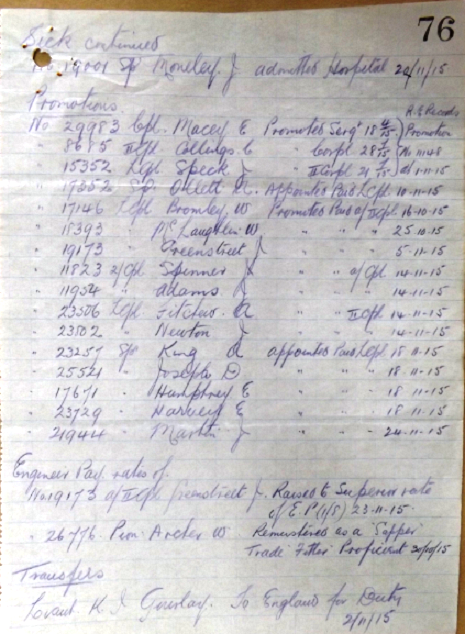 76
Sick continued
No 19001 Spr Moneley. J. admitted Hospital 20/11/15
Promotions
R.E Records
No 29983 Cpl. Macey E Promoted Sergt 18 4/15 Promotion
" 8615 II Cpl Collings C " Corpl 28 7/15 No 11148
" 15352 L Cpl Speck J " II Corpl 21 7/15 d/ 1-11-15
" 17352 Spr Ollett A. Appointed Paid L Cpl. 10-11-15
" 17146 L Cpl Bromley W Promoted Paid a/ II Cpl 16-10-15
" 18393 " McLaughlin W " " " 25 10-15
" 19173 " Greenstreet J " " " 5-11-15
" 11823 2/Cpl Spinner J " " a/Cpl 14-11-15
" 11954 " Adams J " " " 14-11-15
" 23506 L Cpl A " " II Cpl 14-11-15
" 23502 " Newton J " " " 14-11-15
" 23257 Spr King A appointed Paid L Cpl 18 11-15
" 25521 " Joseph D " " " 18 11-15
" 17671 " Humphrey E " " " 18 11-15
" 23729 " Harvey E " " " 18 11-15
" 21944 " Martin J " " " 24-11-15
Engineer Pay. rates of.
No 19173 a/ II Cpl Greenstreet J. Raised to Superior rate
of E.P (1/5) 23-11-15
" 26776 Pnr. Archer W Remustered as a "Sapper"
Trade Fitter Proficient 20/10/15
Transfers
Lieut K. I Gourlay. To England for Duty
2/11/15